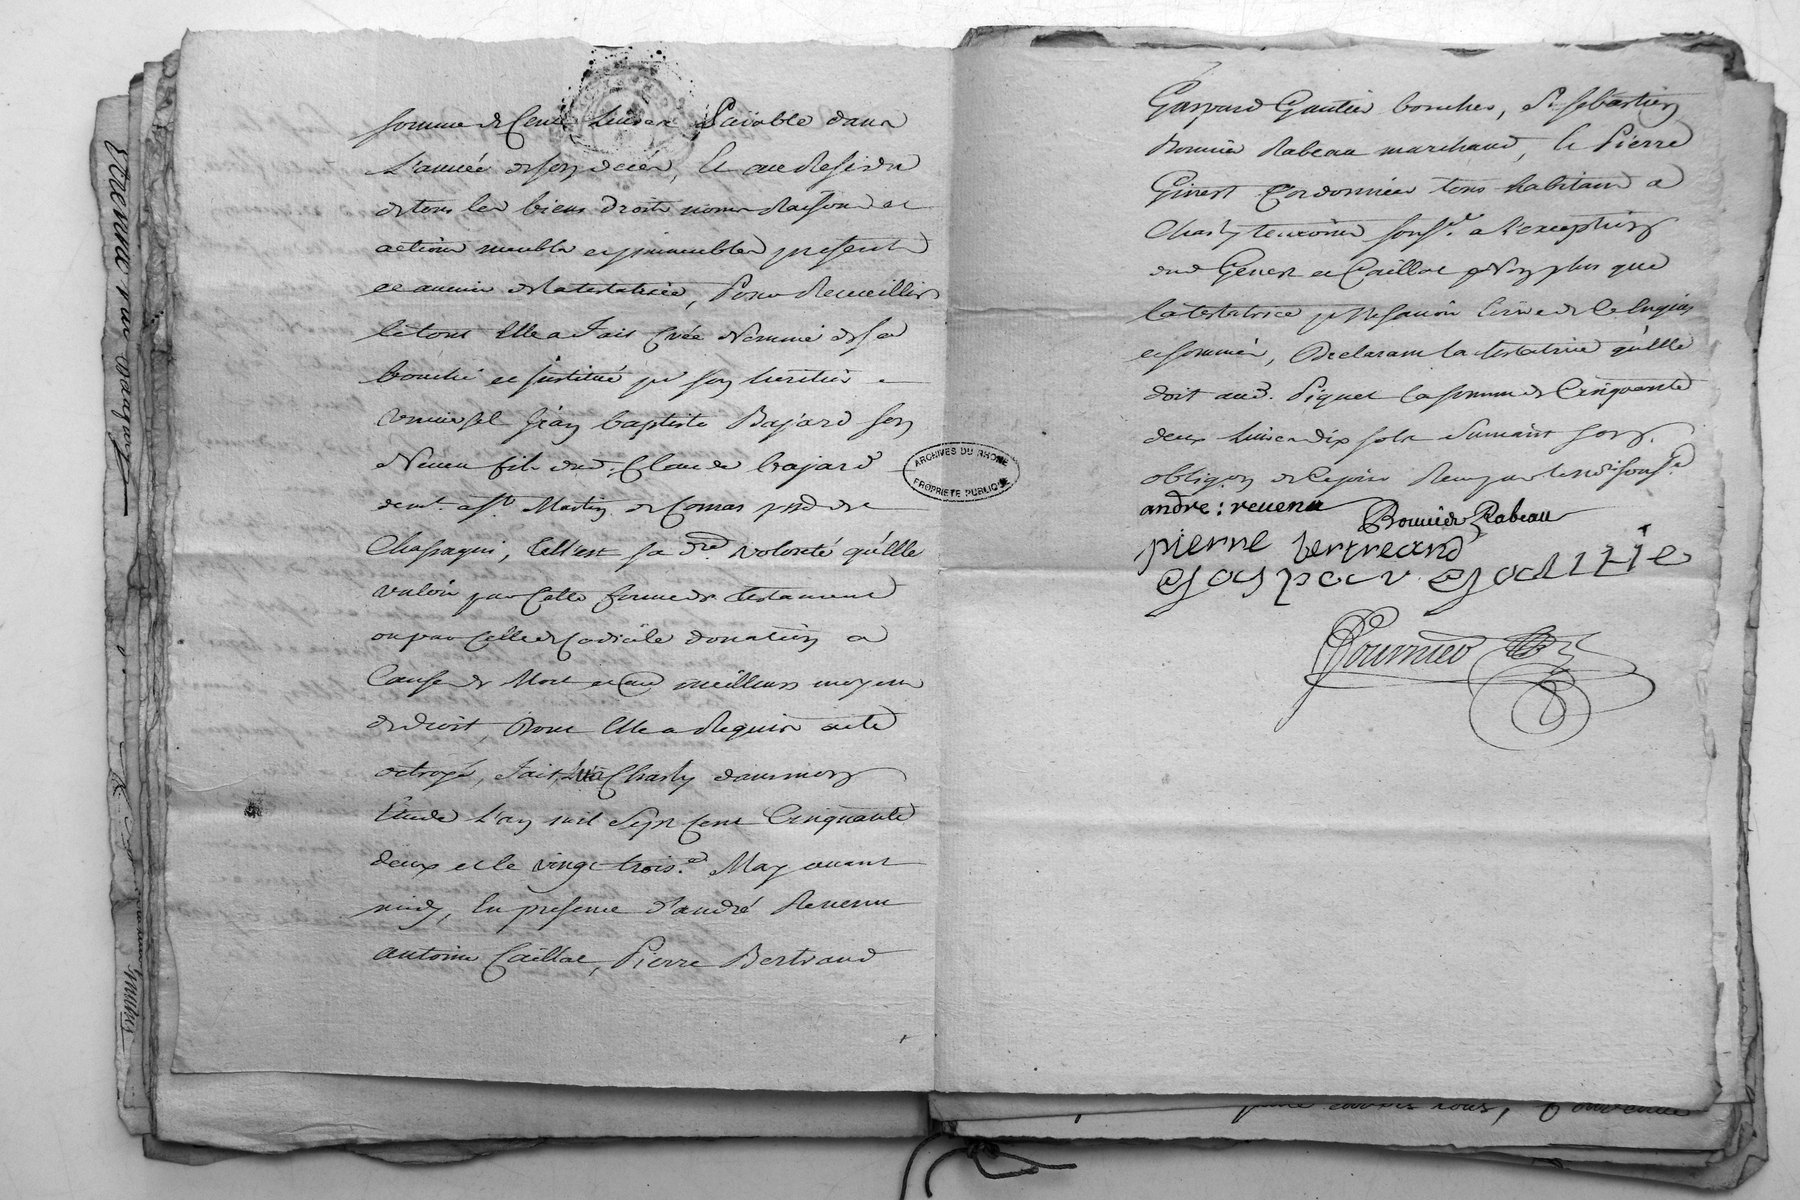 somme de Cent Livres Païable dans
L'année de son decés, Et au Residu
de tous les biens droits noms Raisons et
actions meubles et immeubles présents
et avenir de la testatrice, Pour Recueillir
le tout Elle a fait Créé Nommé de sa
bouche et Institué pr son heritier
universel Jean baptiste Bajard son
Neveu fils dud. Claude bajard
demt. a St. Martin de Cornas psse de
Chassagni, telle est sa dre volonté qu'Elle
valoir par Cette forme de testament
ou par Celle de Codicile donation a
Cause de Mort et au meilleurs moyens
de droit, Dont Elle a Requis acte
octroyé, fait Charly dans mon
Etude L'an mil Sept Cent Cinquante
deux et le vingt trois.e May avant
midy, En présence d'andré Revenu
antoine Caillat, Pierre Bertrand
Gaspard Gautier boucher, Sr. sebastien
Bonnier Rabeau marchand, et Pierre
Genest Cordonnier tous habitans a
Charly temoins souss. a l'exception
dud Genest et Caillat Non plus que
la testatrice pr ne savoir Ecrire de Ce Enquis
et sommés, Declarant la testatrice qu'Elle
doit aud. Piquet la somme de Cinquante
deux Livres dix sols suivant son
obligaon de Ce jour Reçu par le nore. souss.é
andre : revenu
Bonnier Rabeau
pierre bertreand
gaspar gautié
Fournier
ARCHIVES DU RHONE
PROPRIETE PUBLIQUE